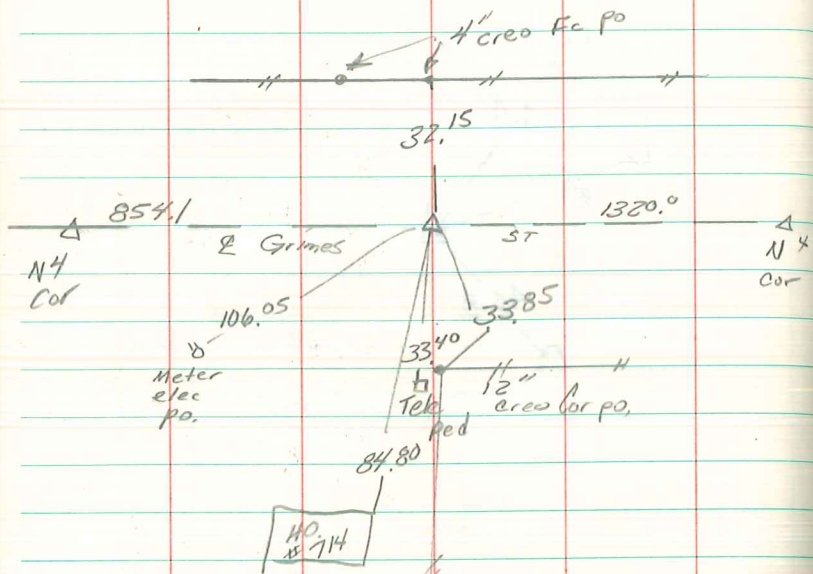 4" creo Fc po
32.15
854.1
1320.0
℄ Grimes ST
N4
Cor
N 4
Cor
106.05
33.85
33.40
Meter
elec
po.
Tele
ped
12"
creo Cor po,
84.80
HO.
# 714